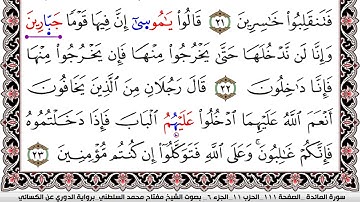 فَتَنقَلِبُوا۟ خَـٰسِرِينَ ٢١ قَالُوا۟ يَـٰمُوسَىٰٓ إِنَّ فِيهَا قَوْمًا جَبَّارِينَ
وَإِنَّا لَن نَّدْخُلَهَا حَتَّىٰ يَخْرُجُوا۟ مِنْهَا فَإِن يَخْرُجُوا۟ مِنْهَا
فَإِنَّا دَٰخِلُونَ ٢٢ قَالَ رَجُلَانِ مِنَ ٱلَّذِينَ يَخَافُونَ
أَنْعَمَ ٱللَّهُ عَلَيْهِمَا ٱدْخُلُوا۟ عَلَيْهِمُ ٱلْبَابَ فَإِذَا دَخَلْتُمُوهُ
فَإِنَّكُمْ غَـٰلِبُونَ وَعَلَى ٱللَّهِ فَتَوَكَّلُوٓا۟ إِن كُنتُم مُّؤْمِنِينَ ٢٣
سورة المائدة _ الصفحة ١١١ _ الحزب ١١ _ الجزء ٦ _ بصوت الشيخ مفتاح محمد السلطني _ برواية الدوري عن الكسائي